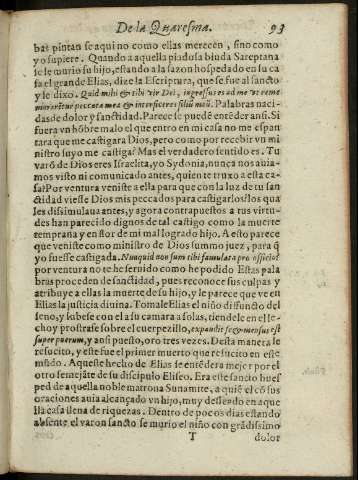 De la Quaresma. 93
bas pintan se aqui no como ellas merecen, sino como
yo supiere. Quando a aquella piadosa biuda Sareptana
se le murio su hijo, estando a la sazon hospedado en su ca
sa el grande Elias, dize la Escriptura, que se fue al sancto
y le dixo. Quid mihi & tibi vir Dei, ingressus es ad me vt reme
morarētur peccata mea & interficeres filiū meū. Palabras naci-
das de dolor y sanctidad. Parece se puedē entēder ansi. Si
fuera vn hōbre malo el que entro en mi casa no me espan
tara que me castigara Dios, pero como por recebir vn mi
nistro suyo me castiga? Mas el verdadero sentido es. Tu
varō de Dios eres Israelita, yo Sydonia, nunca nos auia-
mos visto ni comunicado antes, quien te truxo a esta ca-
sa? Por ventura veniste a ella para que con la luz de tu san
ctidad viesse Dios mis peccados para castigarlos? los qua
les dissimulaua antes, y agora contrapuestos a tus virtu-
des han parecido dignos de tal castigo como la muerte
temprana y en flor de mi mal logrado hijo. A esto parece
que veniste como ministro de Dios summo juez, para q̄
yo fuesse castigada. Nunquid non sum tibi famulata pro officio?
por ventura no te he seruido como he podido Estas pala
bras proceden de sanctidad, pues reconoce sus culpas y
atribuye a ellas la muerte de su hijo, y le parece que ve en
Elias la justicia diuina. Tomale Elias el niño diffuncto del
seno, y subese con el a su camara a solas, tiendele en el le-
cho y prostrase sobre el cuerpezillo, expandit se & mensus est
super puerum, y ansi puesto, oro tres vezes. Desta manera le
resucito, y este fue el primer muerto que resucito en este
mūdo. Aqueste hecho de Elias se entēdera mejor por el
otro semejāte de su discipulo Eliseo. Era este sancto hues
ped de aquella noble matrona Sunamite, a quiē el cō sus
oraciones auia alcançado vn hijo, muy desseado en aque
lla casa llena de riquezas. Dentro de pocos dias estando
absente el varon sancto se murio el niño con grādissimo
T dolor